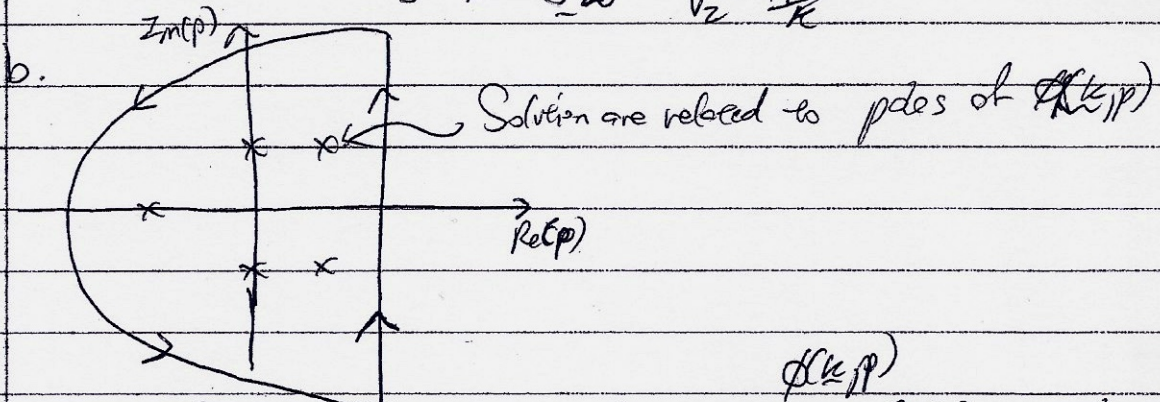 Im(p)
b.
Solution are related to poles of ϕ(k,p)
Re(p)
ϕ(k,p)